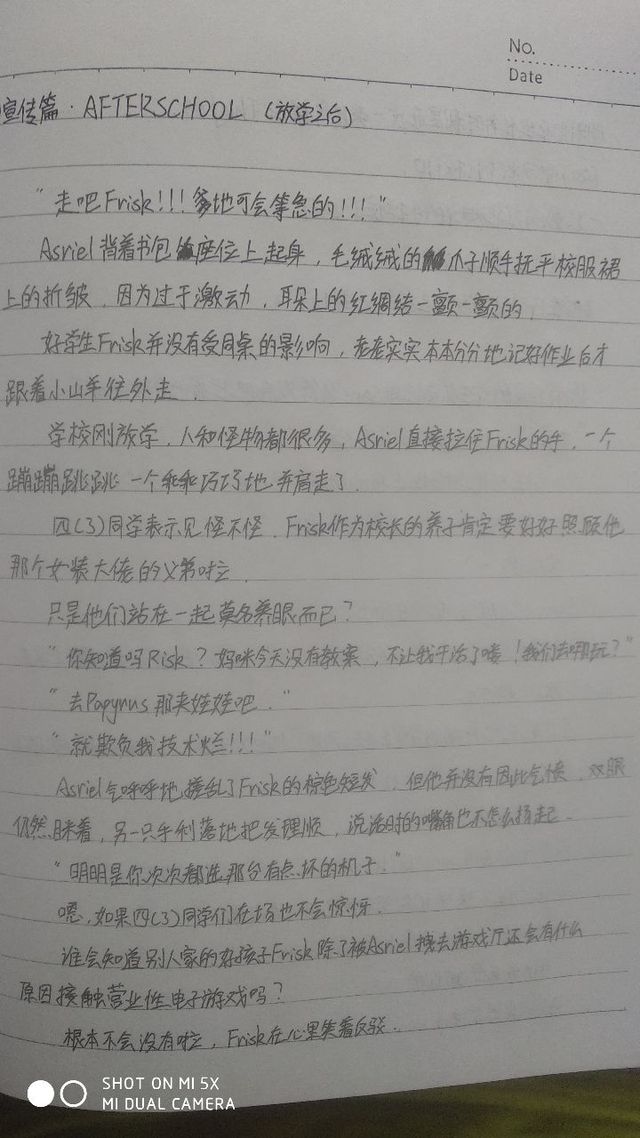 No.
Date
宣传篇·AFTERSCHOOL（放学之后）
"走吧Frisk!!!爹地可会等急的!!!"
Asriel背着书包座位上起身，毛绒绒的爪子顺手抚平校服裙
上的折皱，因为过于激动，耳朵上的红绸结一颤一颤的，
好学生Frisk并没有受同桌的影响，老老实实本本分分地记好作业后才
跟着小山羊往外走．
学校刚放学，人和怪物都很多，Asriel直接拉住Frisk的手，一个
蹦蹦跳跳一个乖乖巧巧地并肩走了．
四(3)同学表示见怪不怪．Frisk作为校长的养子肯定要好好照顾他
那个女装大佬的义弟啦．
只是他们站在一起莫名养眼而已？
"你知道吗Risk？妈咪今天没有教案，不让我干活了喽！我们去哪玩？"
"去Papyrus那夹娃娃吧．"
"就欺负我技术烂!!!"
Asriel气呼呼地揉乱了Frisk的棕色短发，但他并没有因此气恼．双眼
仍然眯着，另一只手利落地把发理顺，说话时的嘴角也不怎么扬起．
"明明是你次次都选那台有点坏的机子．"
嗯，如果四(3)同学们在场也不会惊讶．
谁会知道别人家的好孩子Frisk除了被Asriel拽去游戏厅还会有什么
原因接触营业性电子游戏吗？
根本不会没有啦，Frisk在心里笑着反驳．
SHOT ON MI 5X
MI DUAL CAMERA